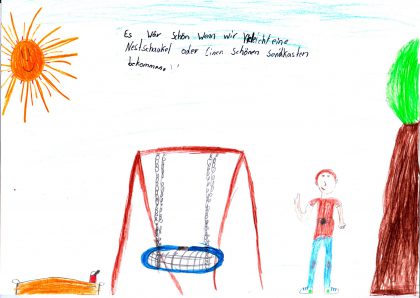 Es wär schön wann wir eine
Nestschaukel oder einen schönen sandkasten
bekommen.!!